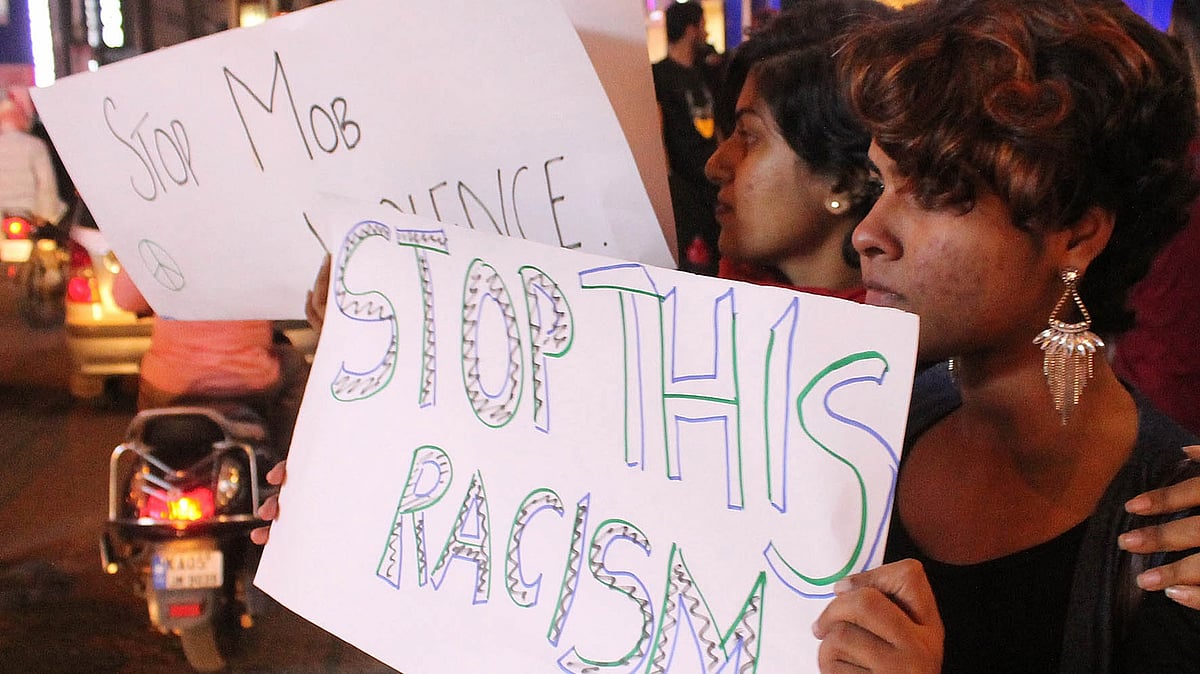 Stop Mob
VIOLENCE.
STOP THIS
RACISM
KA05